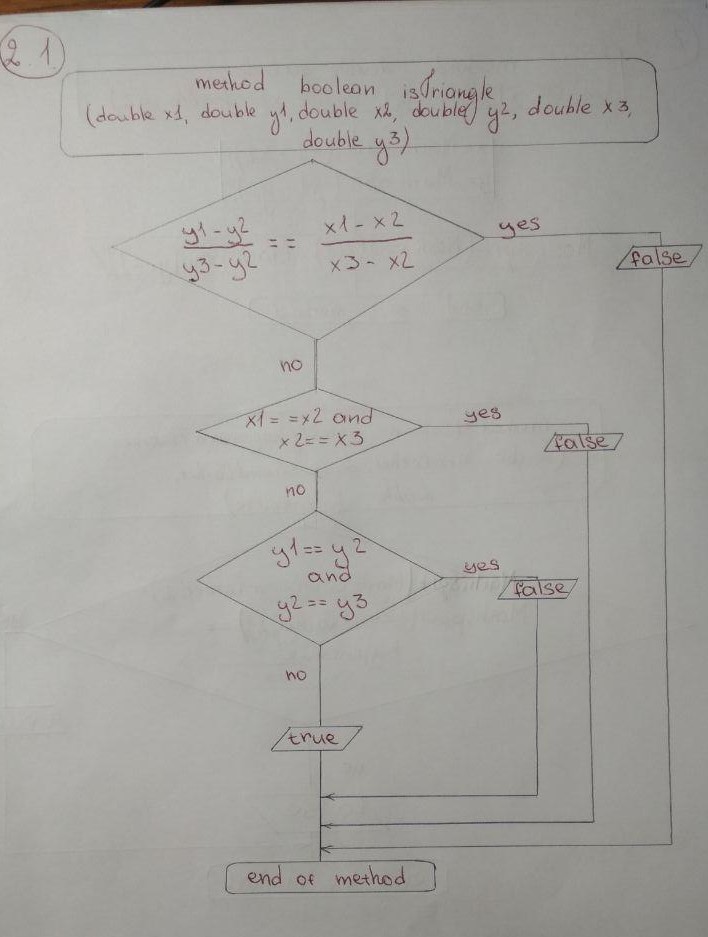 2.1.
method boolean isTriangle
(double x1, double y1, double x2, double y2, double x3,
double y3)
y1-y2 / y3-y2 == x1-x2 / x3-x2
yes
false
no
x1==x2 and
x2==x3
yes
false
no
y1==y2
and
y2==y3
yes
false
no
true
end of method